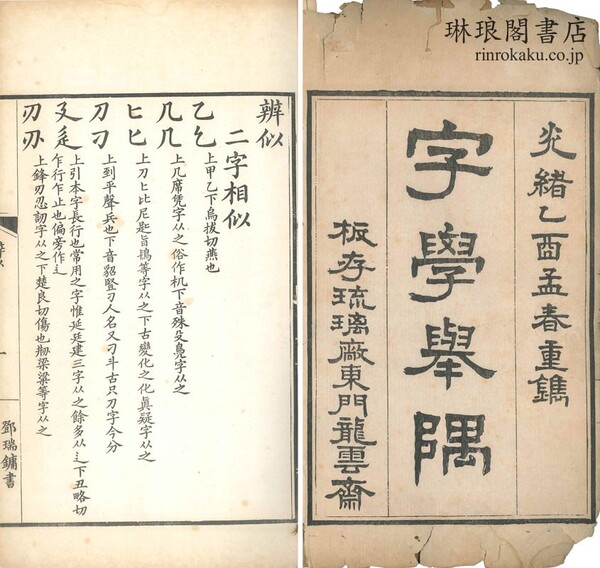 琳琅閣書店
rinrokaku.co.jp
光緒乙酉孟春重鐫
字學舉隅
板存琉璃廠東門龍雲齋
辨似
二字相似
乙乞
上甲乙下烏拔切燕也
几𠘧
上几席凭字从之俗作机下音殊殳鳧字从之
匕𠤎
上刀匕比尼匙旨鴇等字从之下古變化之化眞疑字从之
刀刁
上到平聲兵也下音貂豎刁人名又刁斗古只刀字今分
廴辵
上引本字長行也常用之字惟延廷建三字从之餘多从辶下丑略切
乍行乍止也偏旁作辶
刃刅
上鋒刃忍訒字从之下楚良切傷也剏梁粱等字从之
鄧瑞鏞書